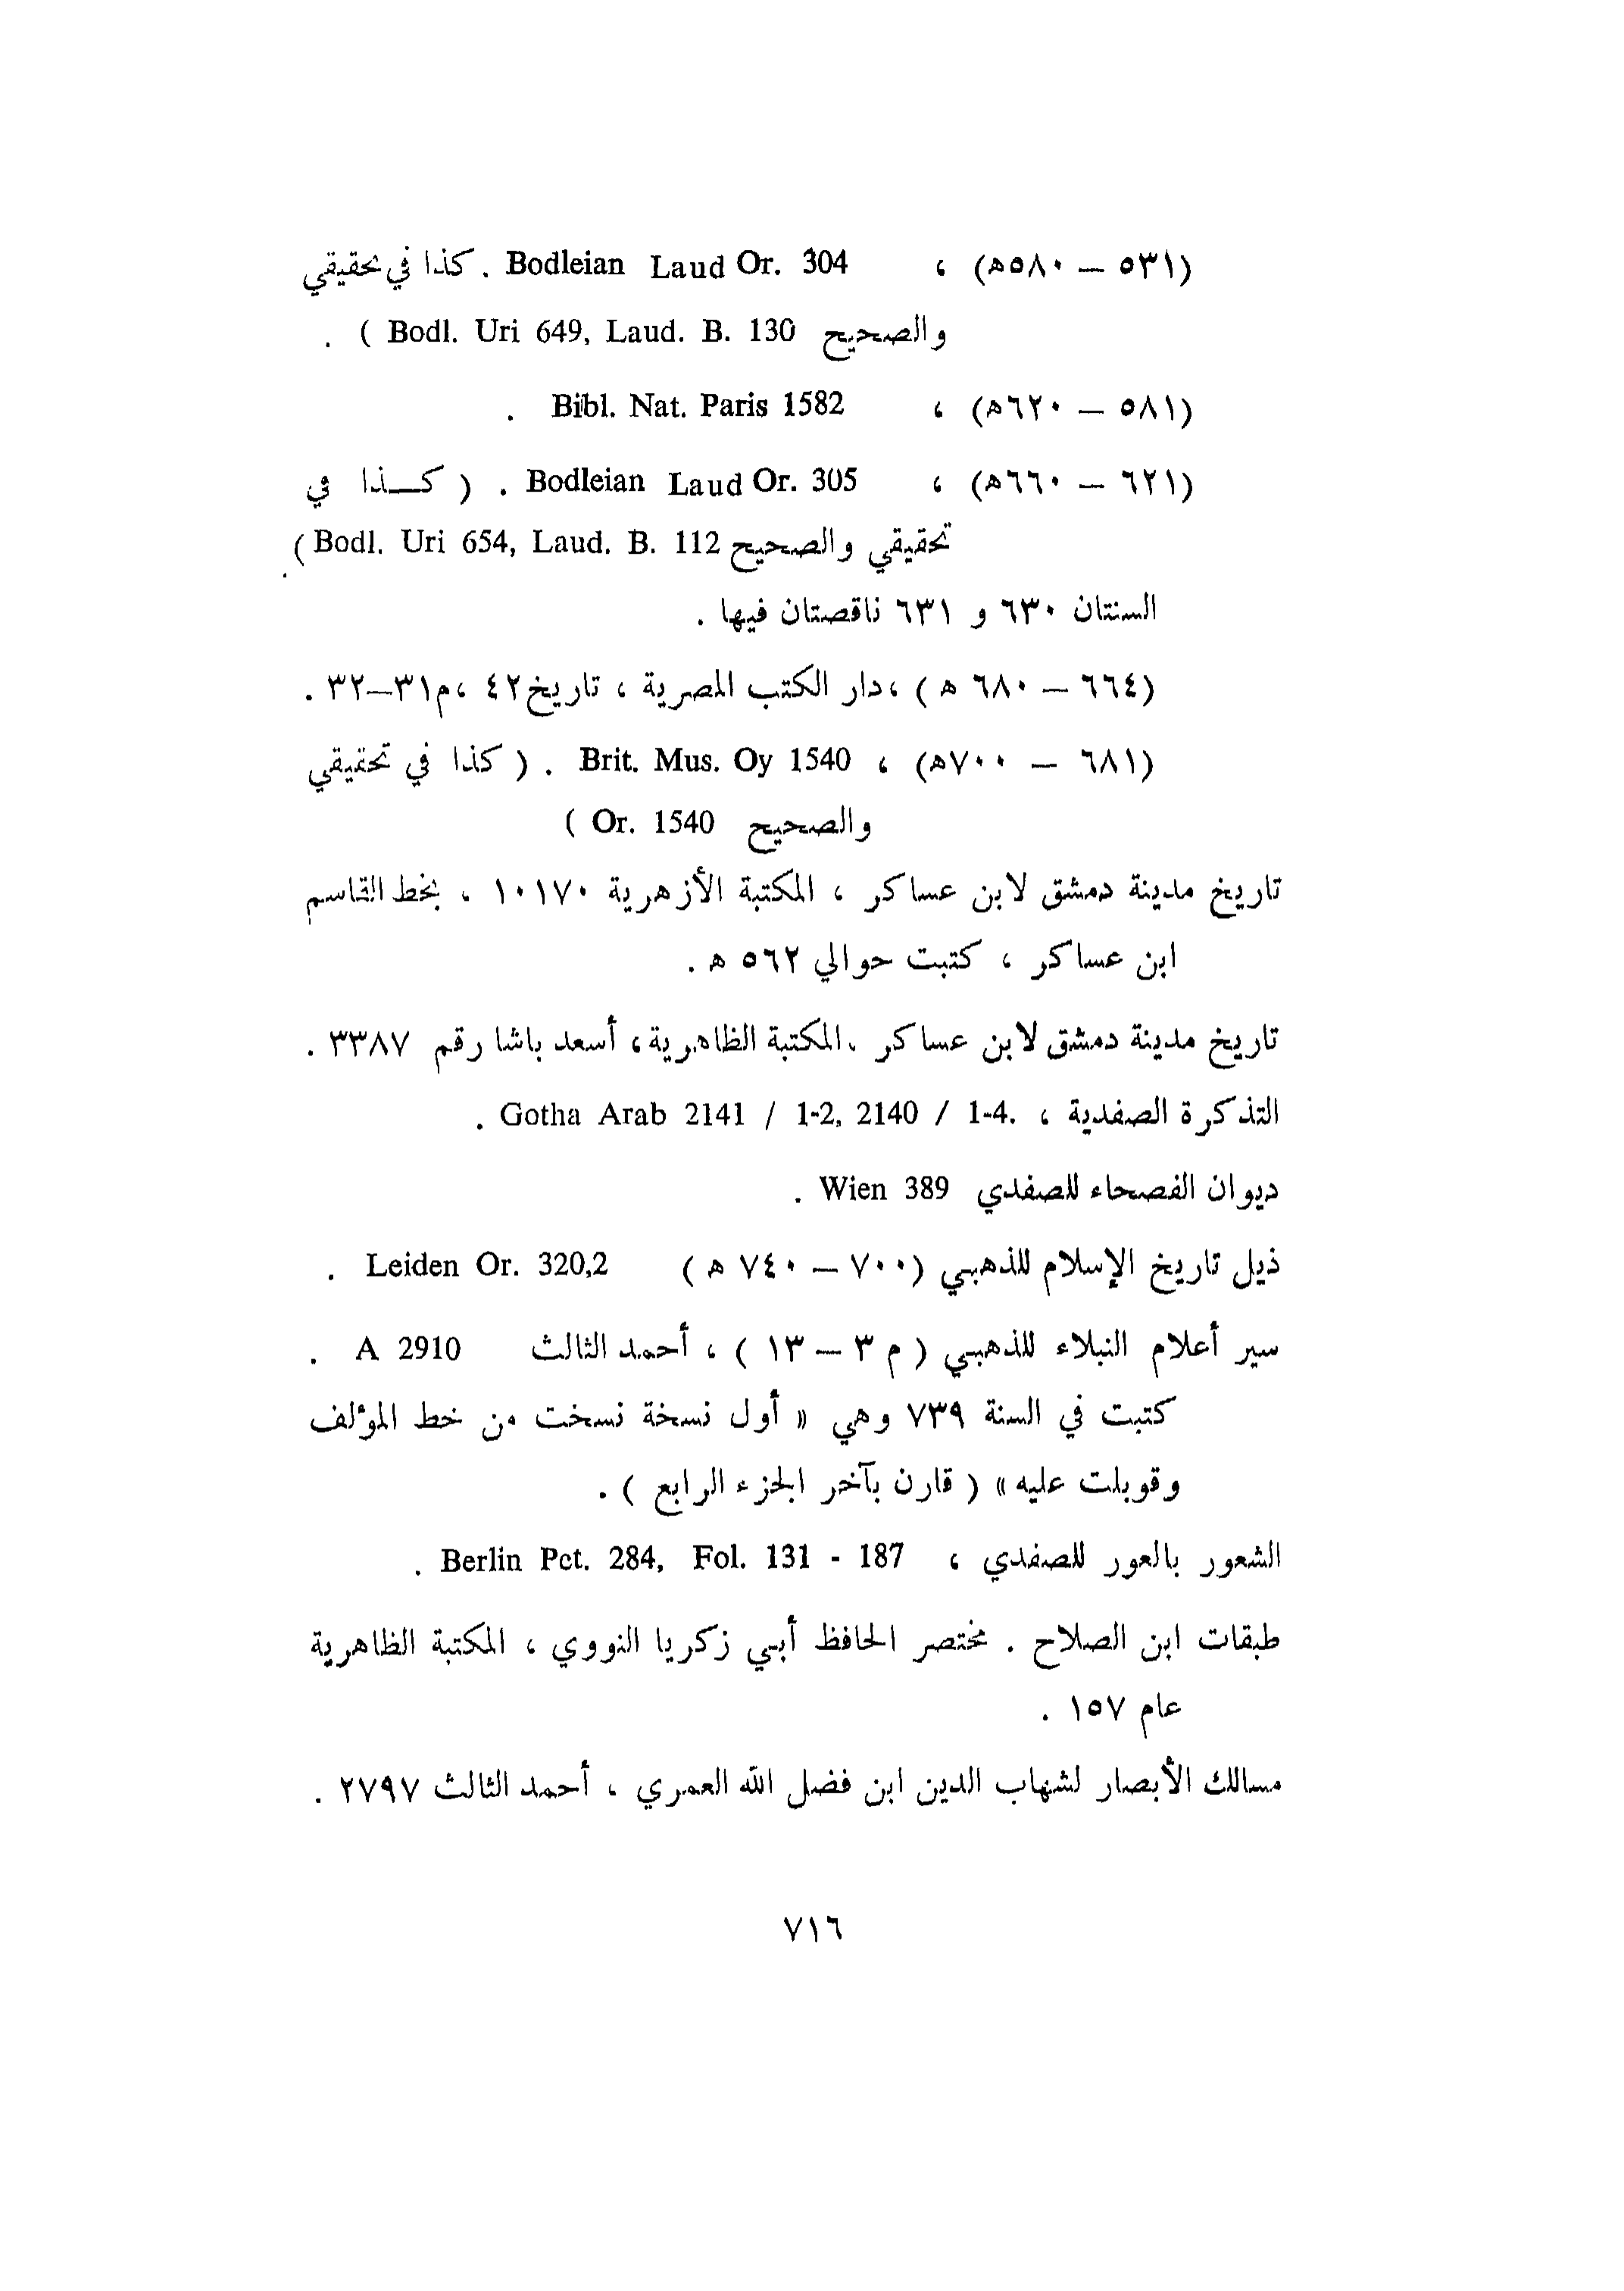 (٥٣١ – ٥٨٠ه) ، Bodleian Laud Or. 304 . كذا في تحقيقي
والصحيح Bodl. Uri 649, Laud. B. 130 ) .
(٥٨١ – ٦٢٠ه) ، Bibl. Nat. Paris 1582 .
(٦٢١ – ٦٦٠ه) ، Bodleian Laud Or. 305 . ( كـــذا في
تحقيقي والصحيح Bodl. Uri 654, Laud. B. 112 ) .
السنتان ٦٣٠ و ٦٣١ ناقصتان فيها .
(٦٦٤ – ٦٨٠ ه ) ، دار الكتب المصرية ، تاريخ ٤٢ ، م ٣١–٣٢ .
(٦٨١ – ٧٠٠ه) ، Brit. Mus. Oy 1540 . ( كذا في تحقيقي
والصحيح Or. 1540 )
تاريخ مدينة دمشق لابن عساكر ، المكتبة الأزهرية ١٠١٧٠ ، بخط القاسم
ابن عساكر ، كتبت حوالي ٥٦٢ ه .
تاريخ مدينة دمشق لابن عساكر ، المكتبة الظاهرية ، أسعد باشا رقم ٣٣٨٧ .
التذكرة الصفدية ، Gotha Arab 2141 / 1-2, 2140 / 1-4. .
ديوان الفصحاء للصفدي Wien 389 .
ذيل تاريخ الإسلام للذهبي (٧٠٠ – ٧٤٠ ه ) Leiden Or. 320,2 .
سير أعلام النبلاء للذهبي ( م ٣ – ١٣ ) ، أحمد الثالث A 2910 .
كتبت في السنة ٧٣٩ وهي « أول نسخة نسخت من خط المؤلف
وقوبلت عليه » ( قارن بآخر الجزء الرابع ) .
الشعور بالعور للصفدي ، Berlin Pct. 284, Fol. 131 - 187 .
طبقات ابن الصلاح . مختصر الحافظ أبي زكريا النووي ، المكتبة الظاهرية
عام ١٥٧ .
مسالك الأبصار لشهاب الدين ابن فضل الله العمري ، أحمد الثالث ٢٧٩٧ .
٧١٦